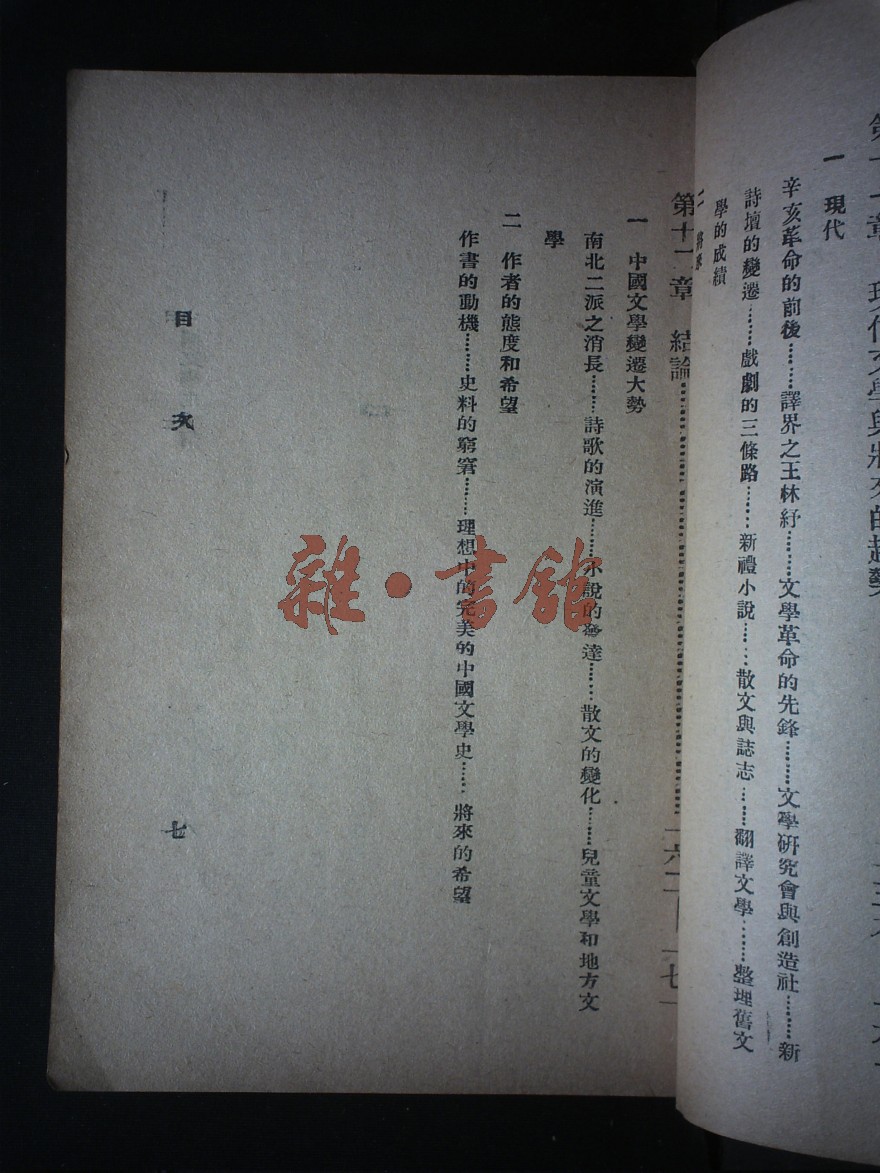 第十一章　現代文學與將來的趨勢
一　現代
辛亥革命的前後………譯界之王林紓………文學革命的先鋒………文學研究會與創造社………新
詩壇的變遷………戲劇的三條路………新禮小說………散文與誌志………翻譯文學………整理舊文
學的成績
將來
第十二章　結論
一　中國文學變遷大勢
南北二派之消長………詩歌的演進………小說的發達………散文的變化………兒童文學和地方文
學
二　作者的態度和希望
作書的動機………史料的窮窘………理想中的完美的中國文學史………將來的希望
目次
七
雜·書館